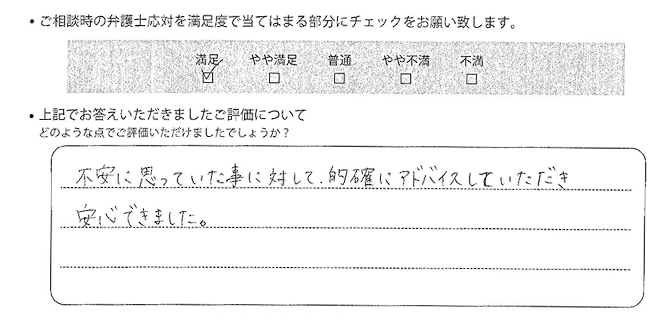 • ご相談時の弁護士応対を満足度で当てはまる部分にチェックをお願い致します。
満足 やや満足 普通 やや不満 不満
☑ □ □ □ □
• 上記でお答えいただきましたご評価について
どのような点でご評価いただけましたでしょうか？
不安に思っていた事に対して、的確にアドバイスしていただき
安心できました。